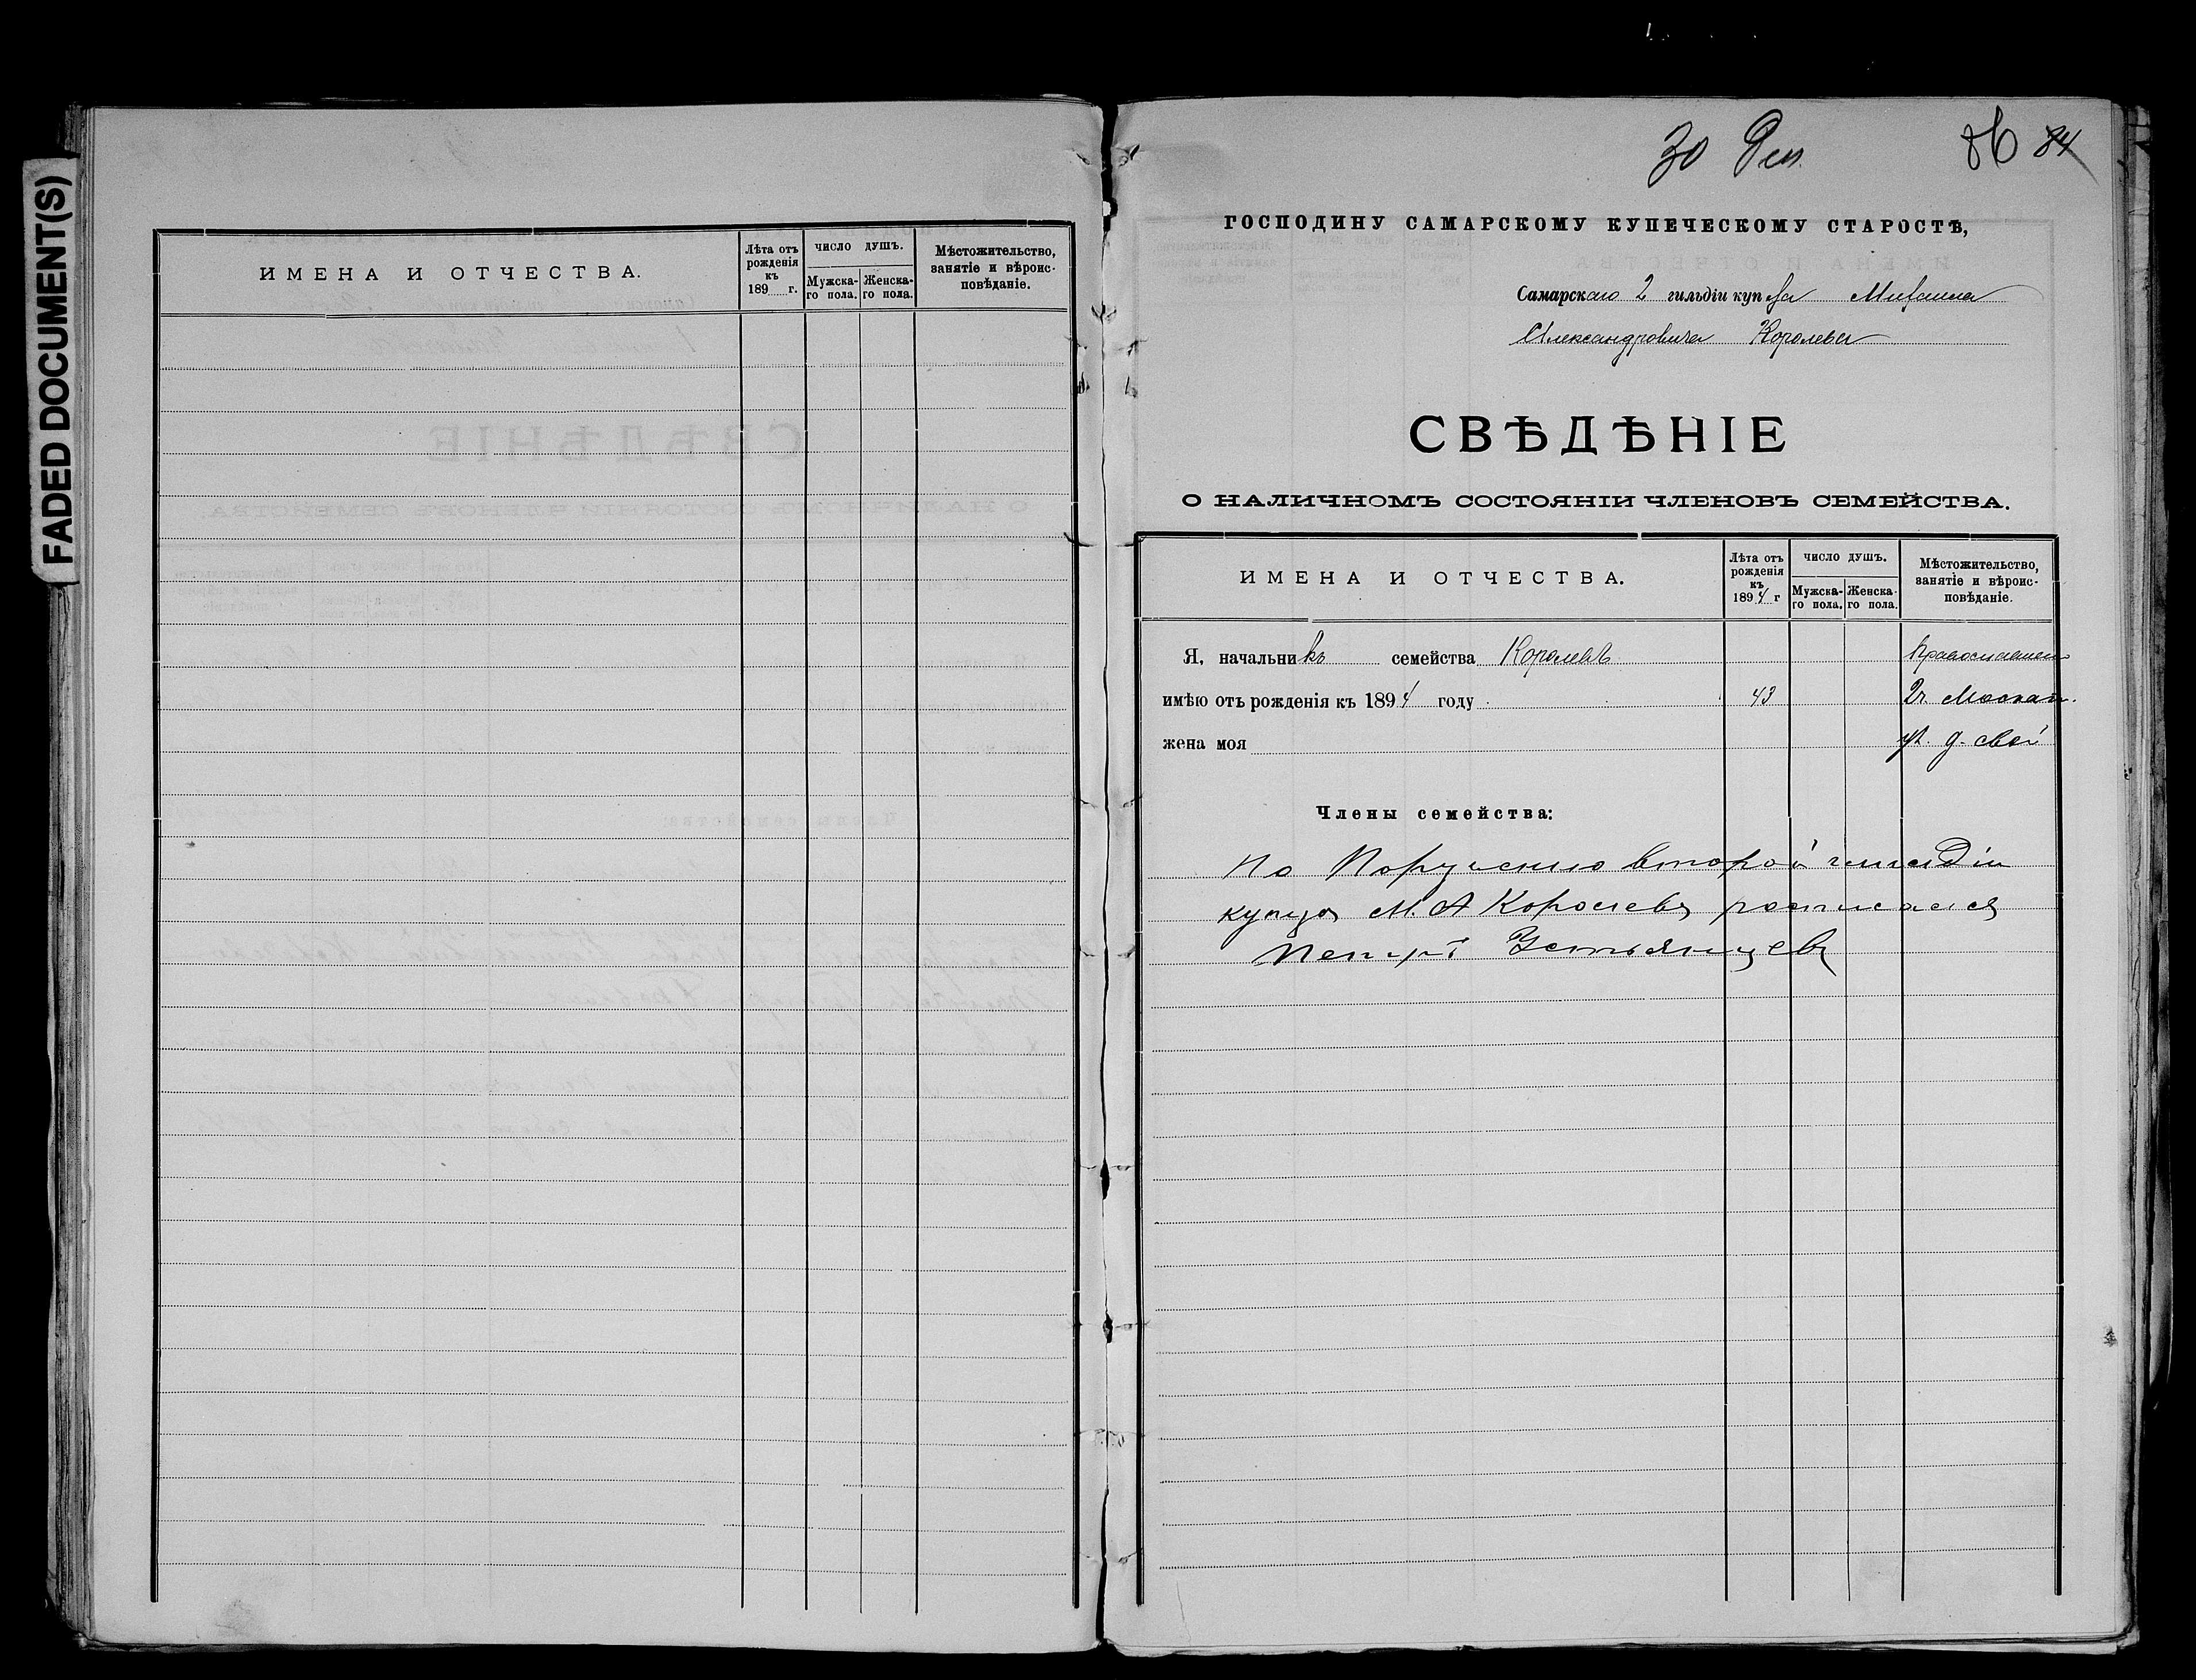 FADED DOCUMENT(S)
ИМЕНА И ОТЧЕСТВА.
Лѣта отъ рожденія къ 189 г.
ЧИСЛО ДУШЪ.
Мужска-го пола.
Женска-го пола.
Мѣстожительство, занятіе и вѣроис-повѣданіе.
30 Дек.
86 84
ГОСПОДИНУ САМАРСКОМУ КУПЕЧЕСКОМУ СТАРОСТѢ,
Самарскаго 2 гильдіи купца Михаила
Александровича Королева
СВѢДѢНІЕ
О НАЛИЧНОМЪ СОСТОЯНІИ ЧЛЕНОВЪ СЕМЕЙСТВА.
ИМЕНА И ОТЧЕСТВА.
Лѣта отъ рожденія къ 1894 г
ЧИСЛО ДУШЪ.
Мужска-го пола.
Женска-го пола.
Мѣстожительство, занятіе и вѣроис-повѣданіе.
Я, начальникъ семейства Королевъ
имѣю отъ рожденія къ 1894 году 43 2ч.
жена моя ул. д. свой
Члены семейства:
По Порученію второй гильдіи
купца М. А Королевъ росписался
Петръ Устьянцевъ